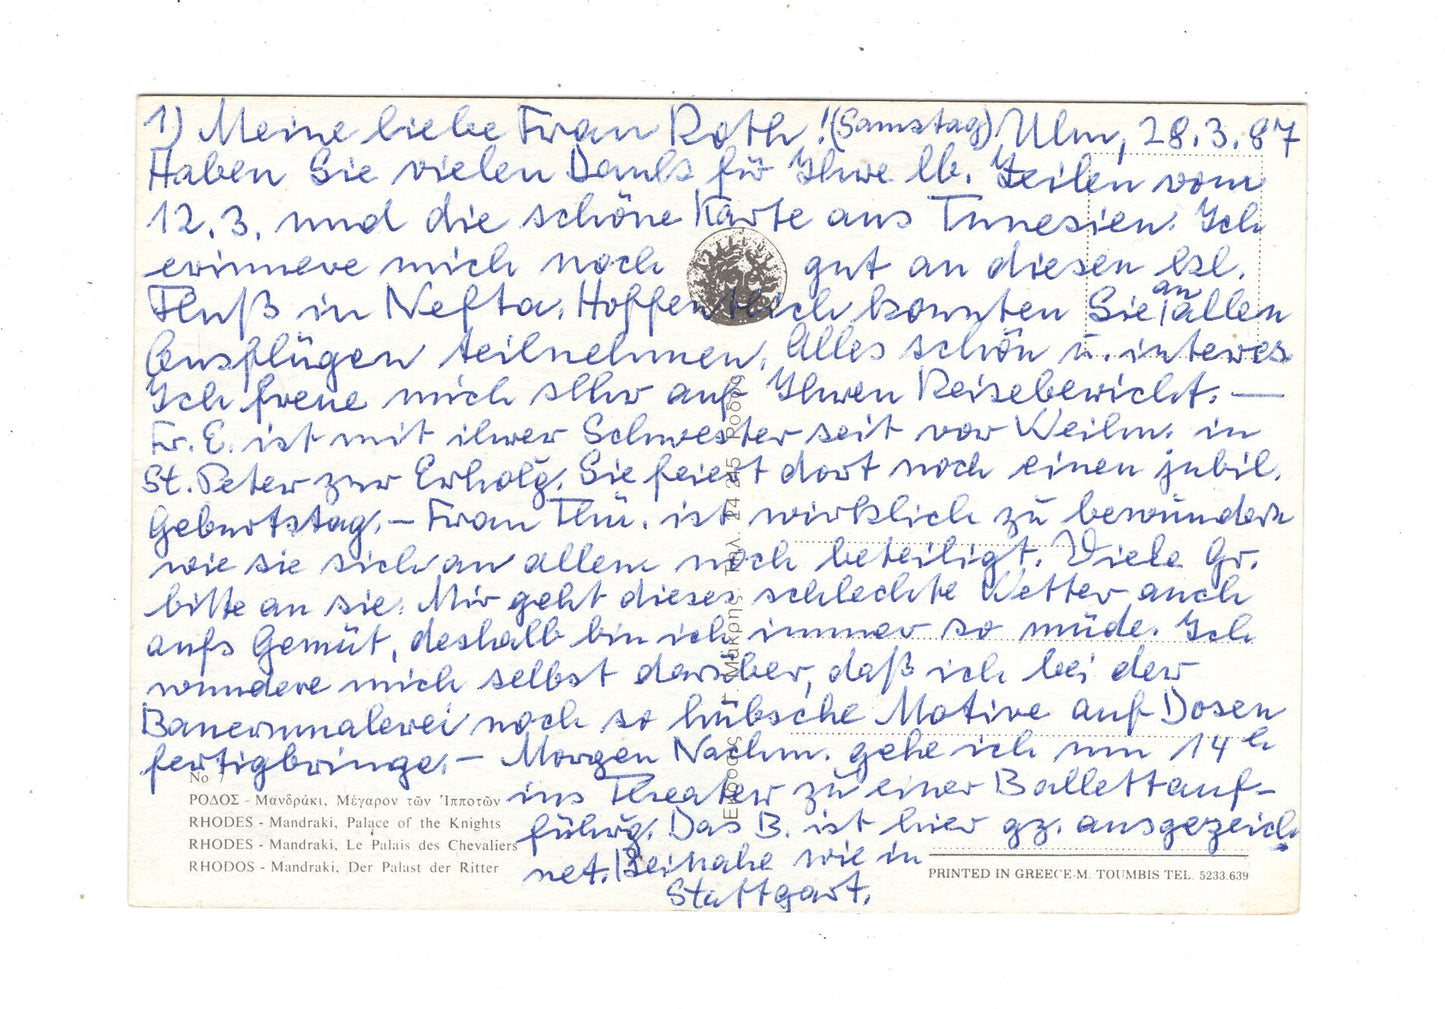 1) Meine liebe Frau Roth! (Samstag) Ulm, 28.3.87
Haben Sie vielen Dank für Ihre lb. Zeilen vom
12.3. und die schöne Karte aus Tunesien. Ich
erinnere mich noch gut an diesen
Fluß in Nefta. Hoffentlich konnten Sie an allen
Ausflügen teilnehmen. Alles schön u. interes
Ich freue mich sehr auf Ihren Reisebericht. —
Fr. E. ist mit ihrer Schwester seit vor Weihn. in
St. Peter zur Erholg. Sie feiert dort noch einen jubil.
Geburtstag. – Frau Thü. ist wirklich zu bewundern
wie sie sich an allem noch beteiligt. Viele Gr.
bitte an sie. Mir geht dieses schlechte Wetter auch
aufs Gemüt, deshalb bin ich immer so müde. Ich
wundere mich selbst darüber, daß ich bei der
Bauernmalerei noch so hübsche Motive auf Dosen
fertigbringe. – Morgen Nachm. gehe ich um 14 h
ins Theater zu einer Ballettauf-
führg. Das B. ist hier gz. ausgezeich
net. Beinahe wie in
Stuttgart.
No
ΡΟΔΟΣ - Μανδράκι, Μέγαρον τῶν Ἱπποτῶν
RHODES - Mandraki, Palace of the Knights
RHODES - Mandraki, Le Palais des Chevaliers
RHODOS - Mandraki, Der Palast der Ritter
PRINTED IN GREECE-M. TOUMBIS TEL. 5233.639
Γ. Μακρής Τηλ. 24 245 Ρόδος